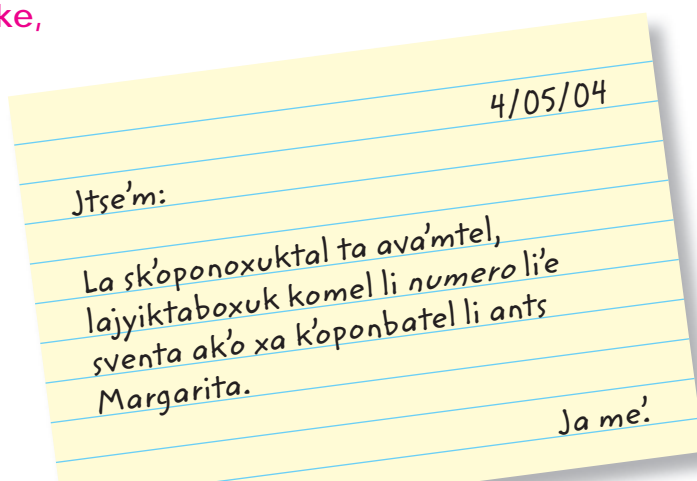 ke,
4/05/04
Jtse'm:
La sk'oponoxuktal ta ava'mtel,
lajyiktaboxuk komel li numero li'e
sventa ak'o xa k'oponbatel li ants
Margarita.
Ja me'.